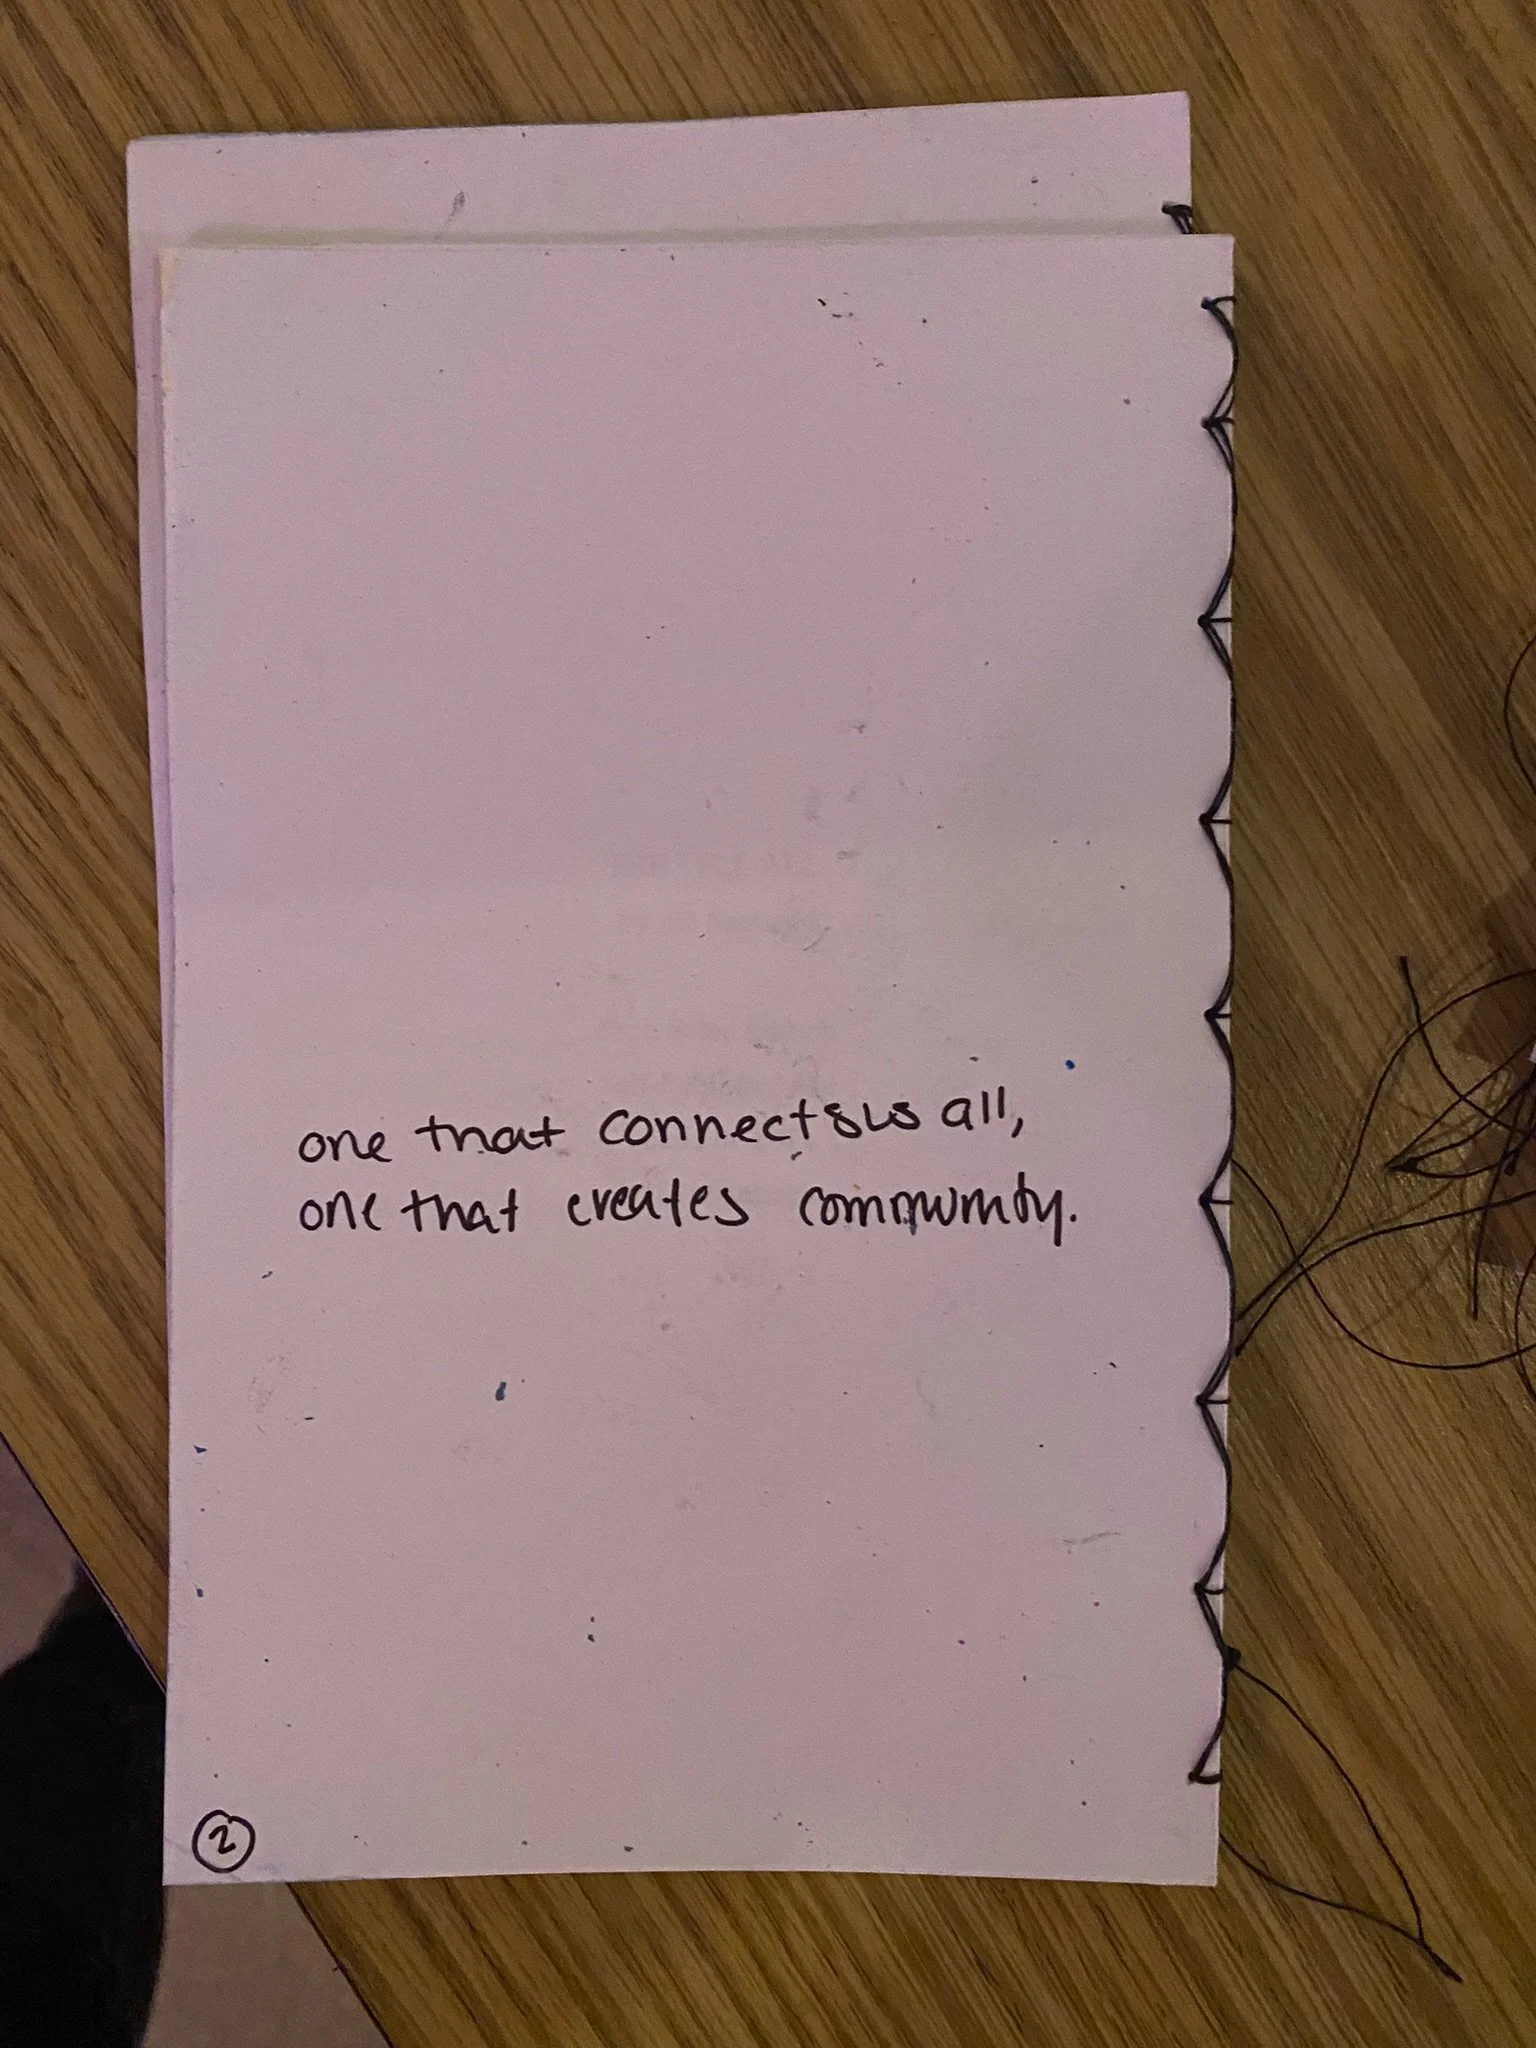 one that connects us all,
one that creates community.
2